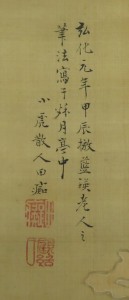 弘化元年甲辰擬藍瑛老人之
筆法寫于蘇月亭中
小虎散人田